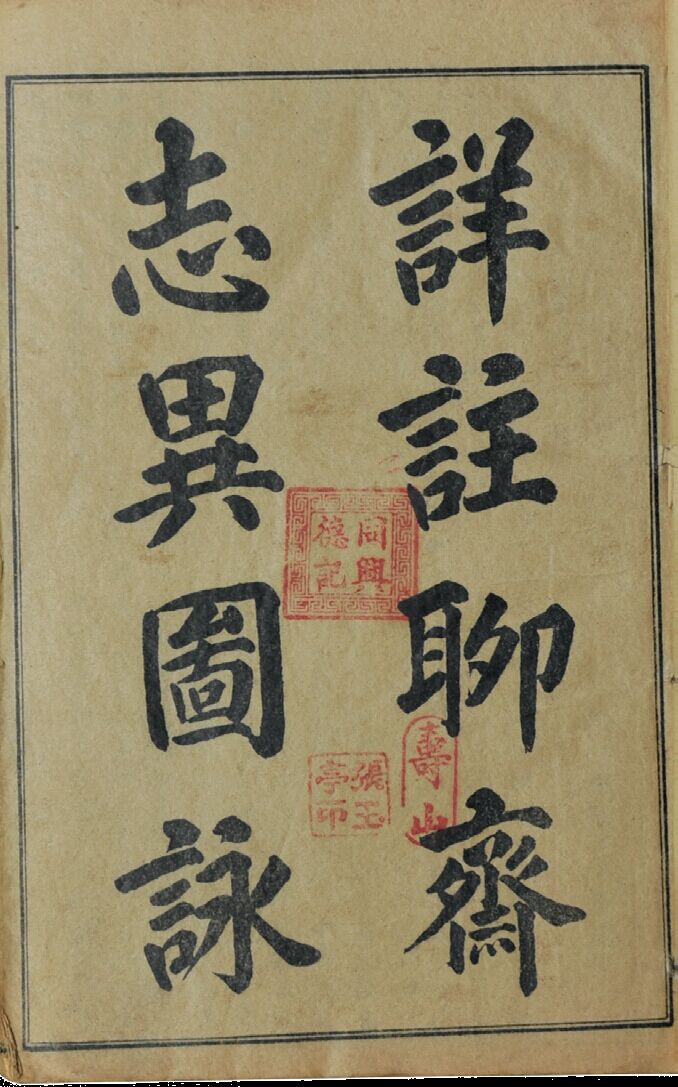 詳註聊齋
志異圖詠
同興
德記
壽山
張玉
亭印